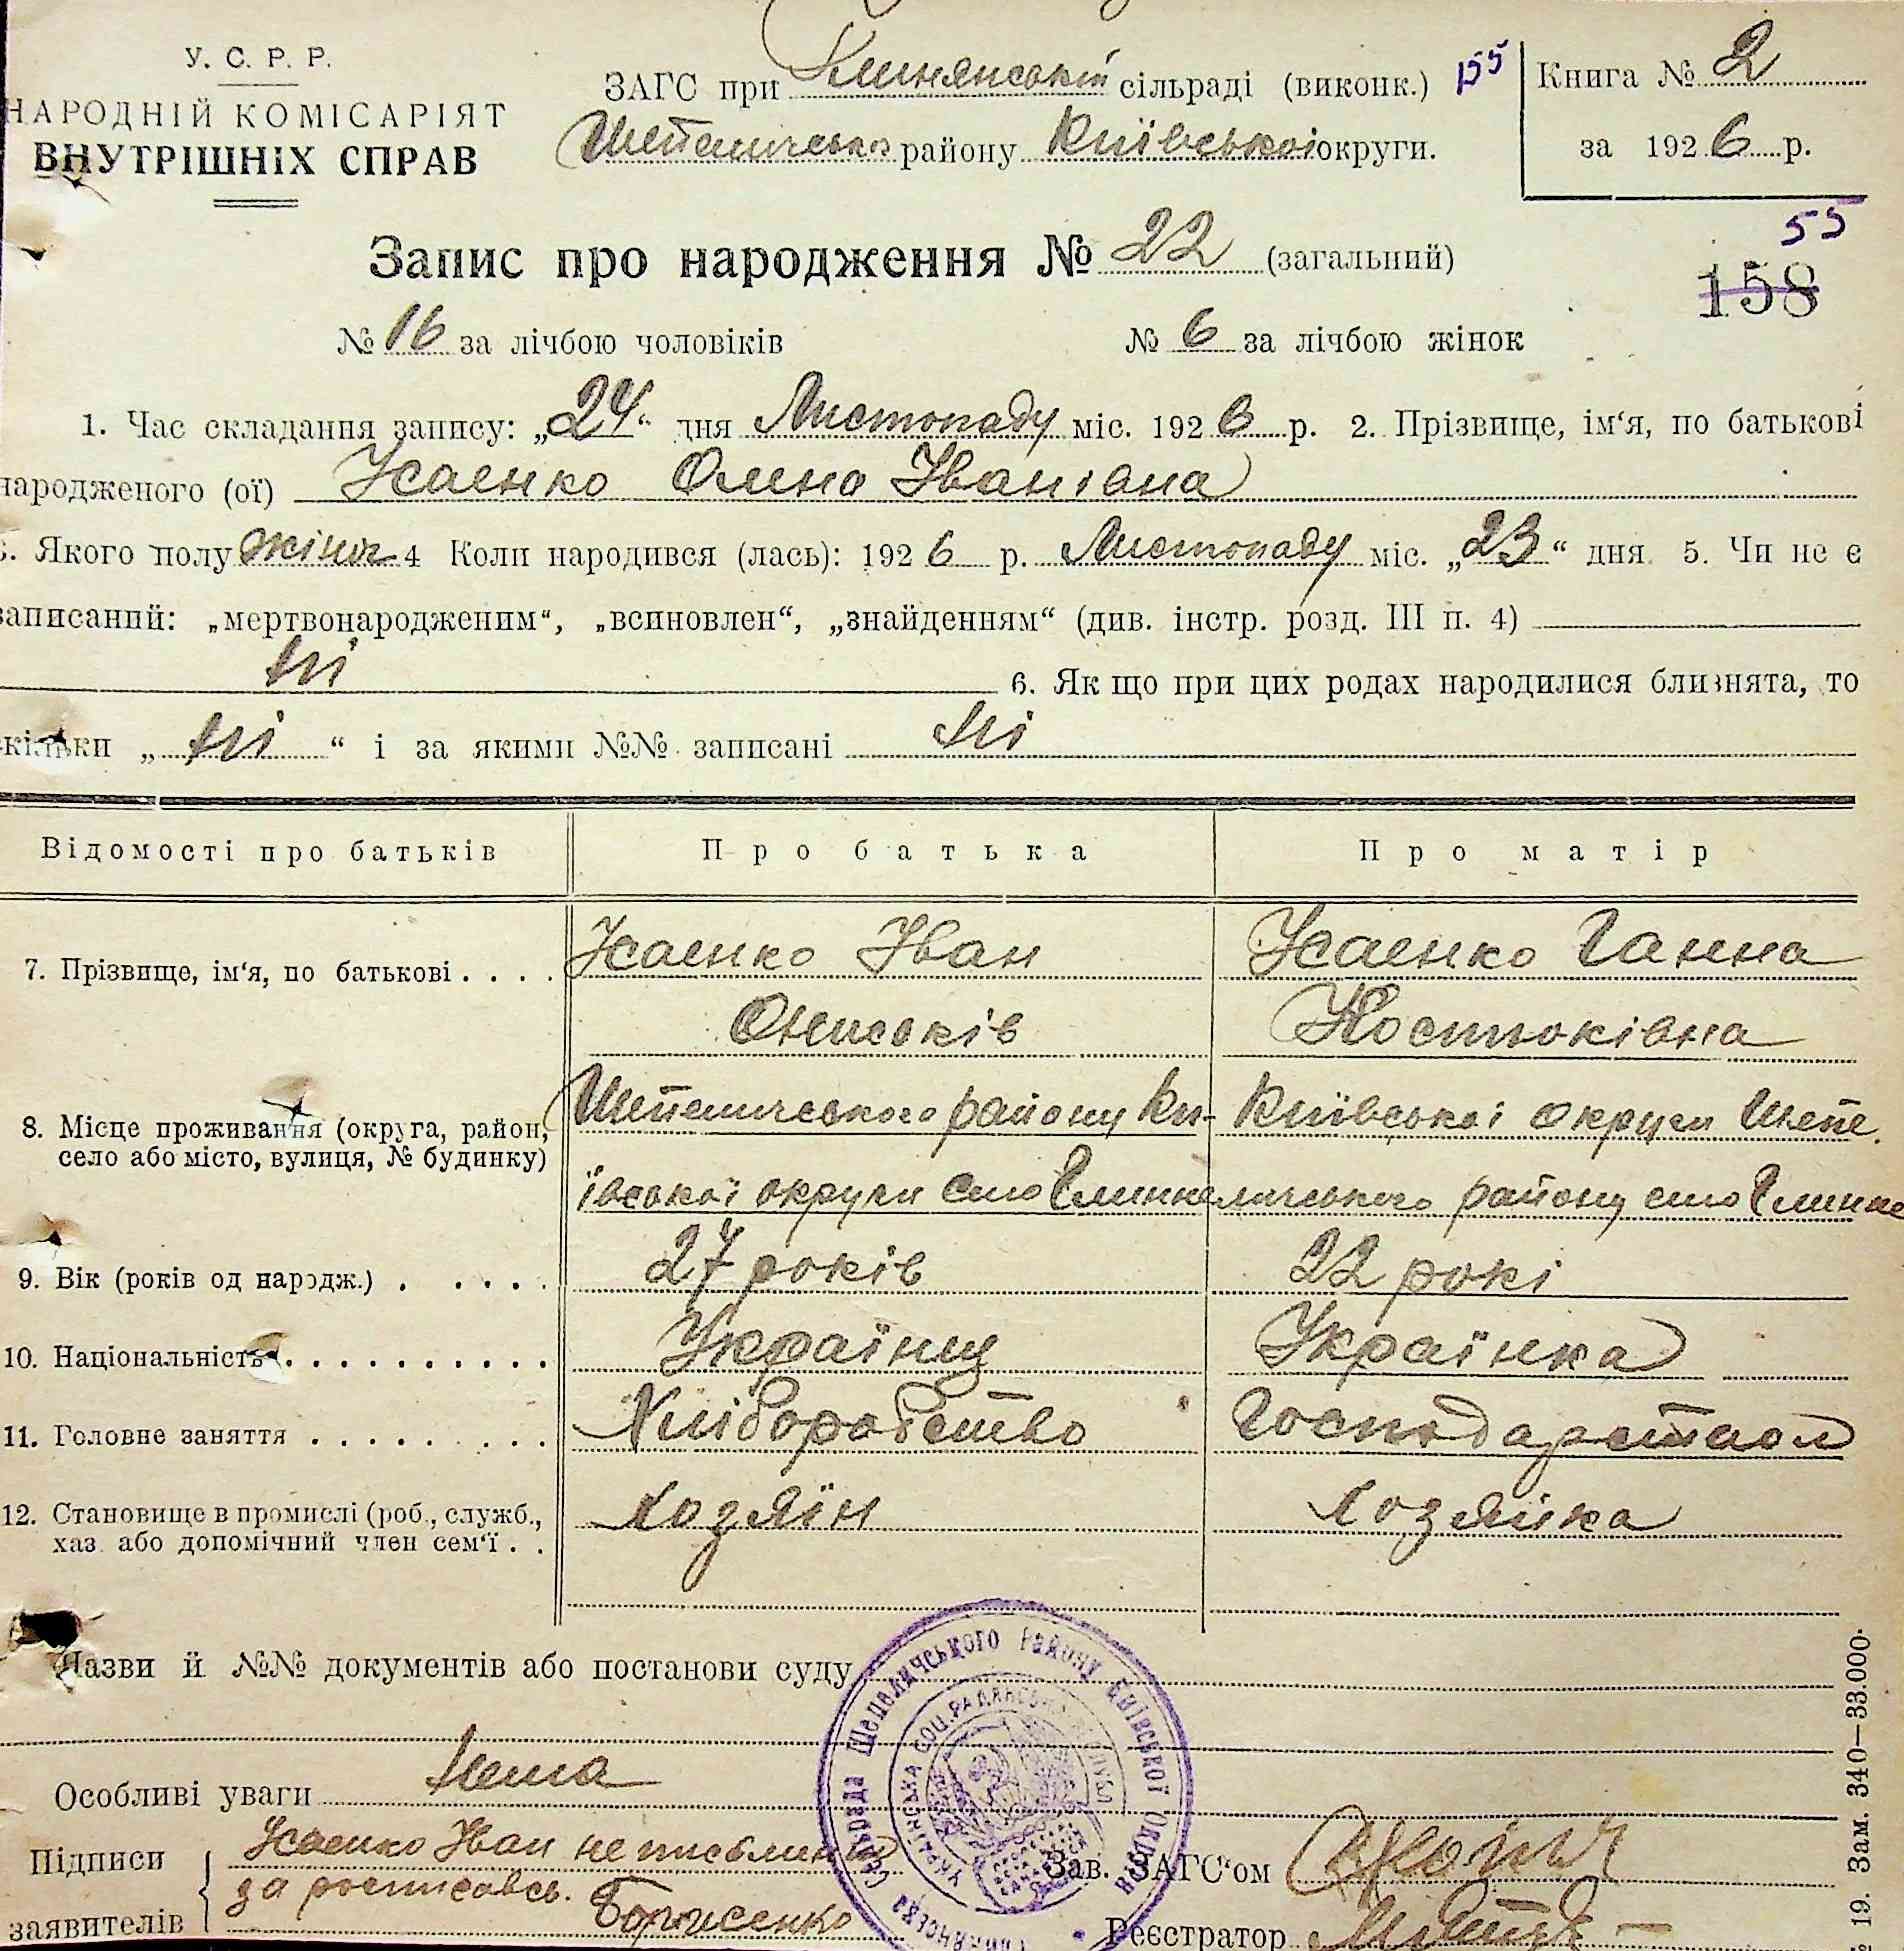 У. С. Р. Р.
НАРОДНІЙ КОМІСАРІЯТ
ВНУТРІШНІХ СПРАВ
ЗАГС при Глинянській сільраді (виконк.) 155
Шепелицького району Київської округи.
Книга № 2
за 1926 р.
55
158
Запис про народження № 22 (загальний)
№ 16 за лічбою чоловіків № 6 за лічбою жінок
1. Час складання запису: „24“ дня Листопаду міс. 1926 р. 2. Прізвище, ім‘я, по батькові
народженого (ої) Ісаенко Олена Іванівна
3. Якого полу жіноч 4 Коли народився (лась): 1926 р. Листопаду міс. „23“ дня 5. Чи не є
записаний: „мертвонародженим“, „всиновлен“, „знайденням“ (див. інстр. розд. III п. 4)
ні 6. Як що при цих родах народилися близнята, то
скільки „ні“ і за якими №№ записані ні
Відомості про батьків Про батька Про матір
7. Прізвище, ім‘я, по батькові . . . . Ісаенко Іван Ісаенко Ганна
Ониськів Костюківна
8. Місце проживання (округа, район, Шепеличського району Ки- Київської округи Шепе
село або місто, вулиця, № будинку) ївської округи село Глинка личського району село Глинка
9. Вік (років од народж.) . . . . . 27 років 22 рокі
10. Національність . . . . . . . . . . . Українец Українка
11. Головне заняття . . . . . . . . . Хліборобство Господарством
12. Становище в промислі (роб., служб., Хозяїн Хозяйка
хаз. або допомічний член сем‘ї . .
Назви й №№ документів або постанови суду
Особливі уваги Нема
Підписи Ісаенко Іван не письменний
за росписавсь. Борисенко
заявителів
Зав. ЗАГС‘ом
Реєстратор
Сільрада Шепеличського Району Київської Округи
УКРАЇНСЬКА СОЦ. РАДЯНСЬКА
19. Зам. 340—33.000.